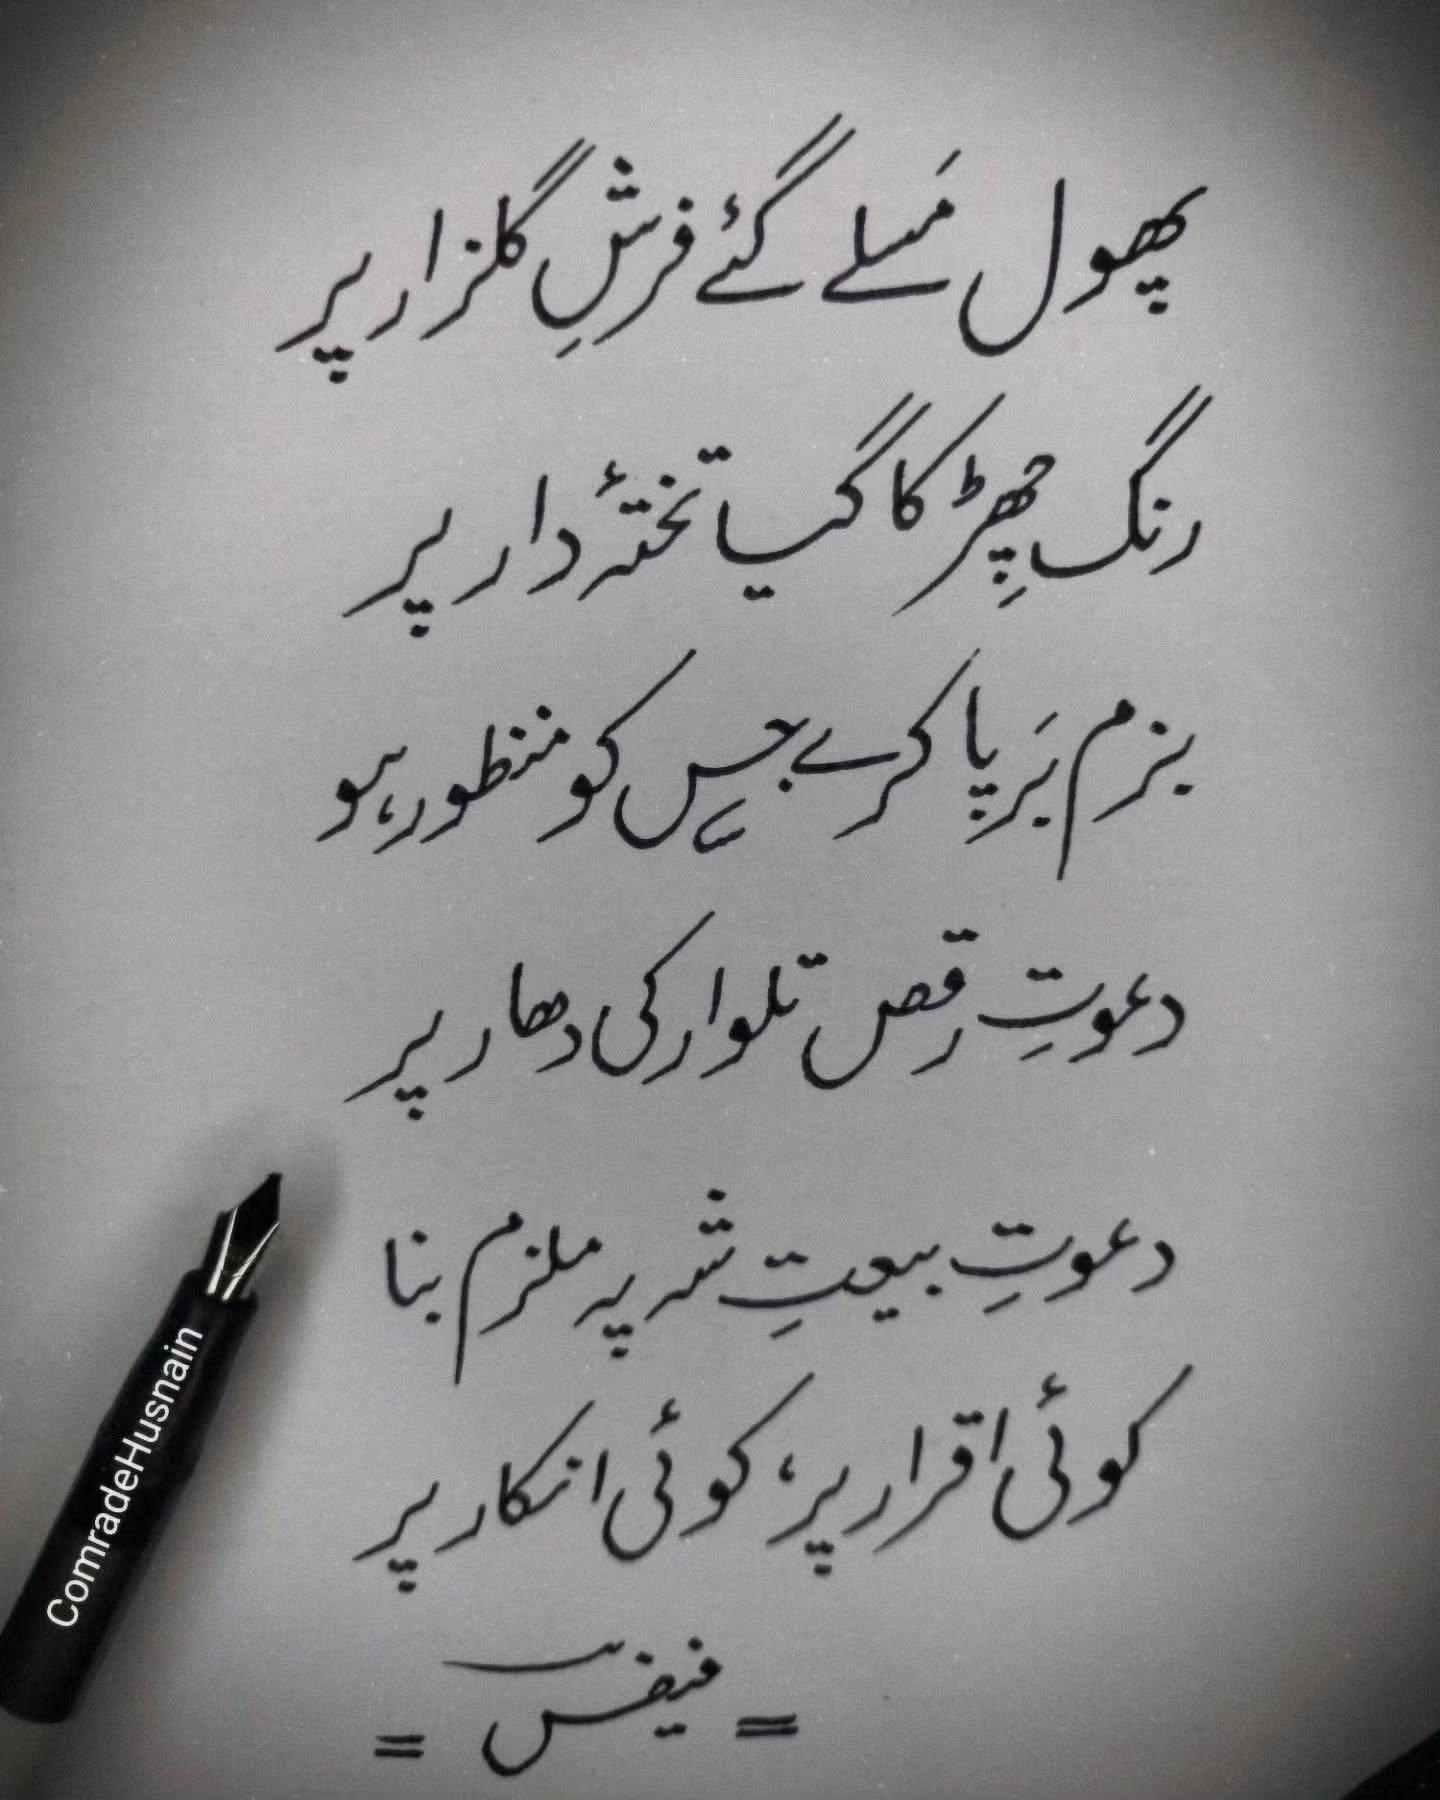 پھول مَسلے گئے فرشِ گلزار پر
رنگ چھِڑکا گیا تختۂ دار پر
بزم بَرپا کرے جس کو منظور ہو
دعوتِ رقص تلوار کی دھار پر
دعوتِ بیعتِ شہ پہ ملزم بنا
کوئی اقرار پر، کوئی انکار پر
= فیضؔ =
ComradeHusnain